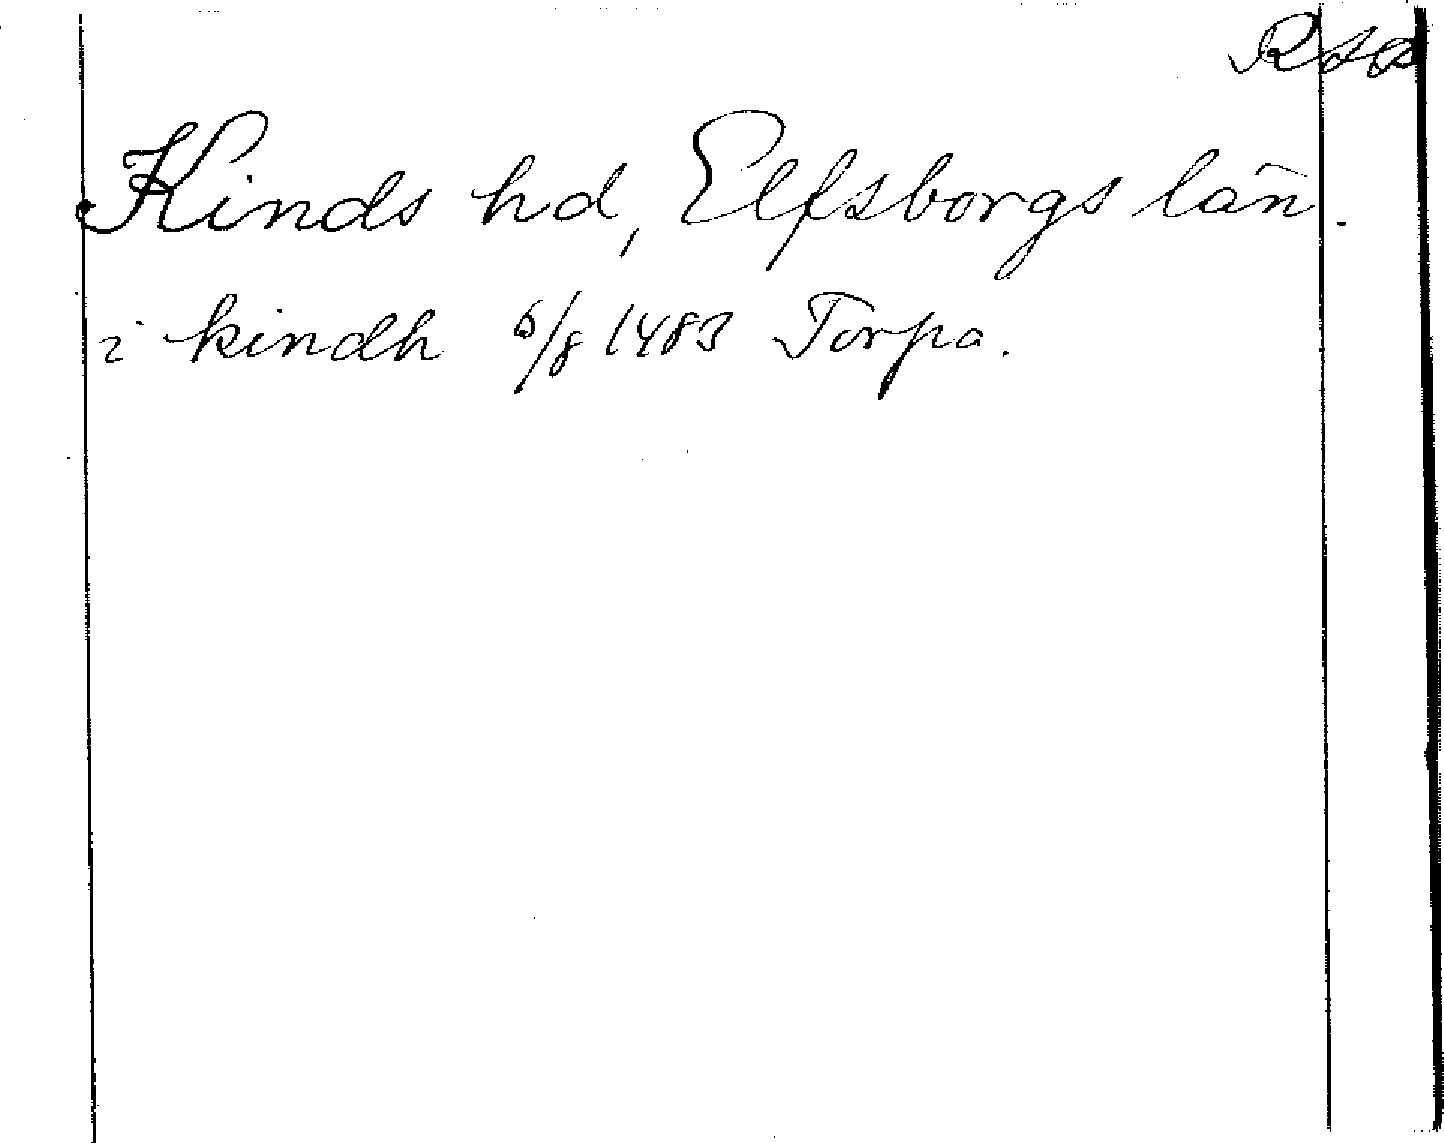 RAp
Kinds hd, Elfsborgs län.
i kindh 6/8 1483 Torpa.